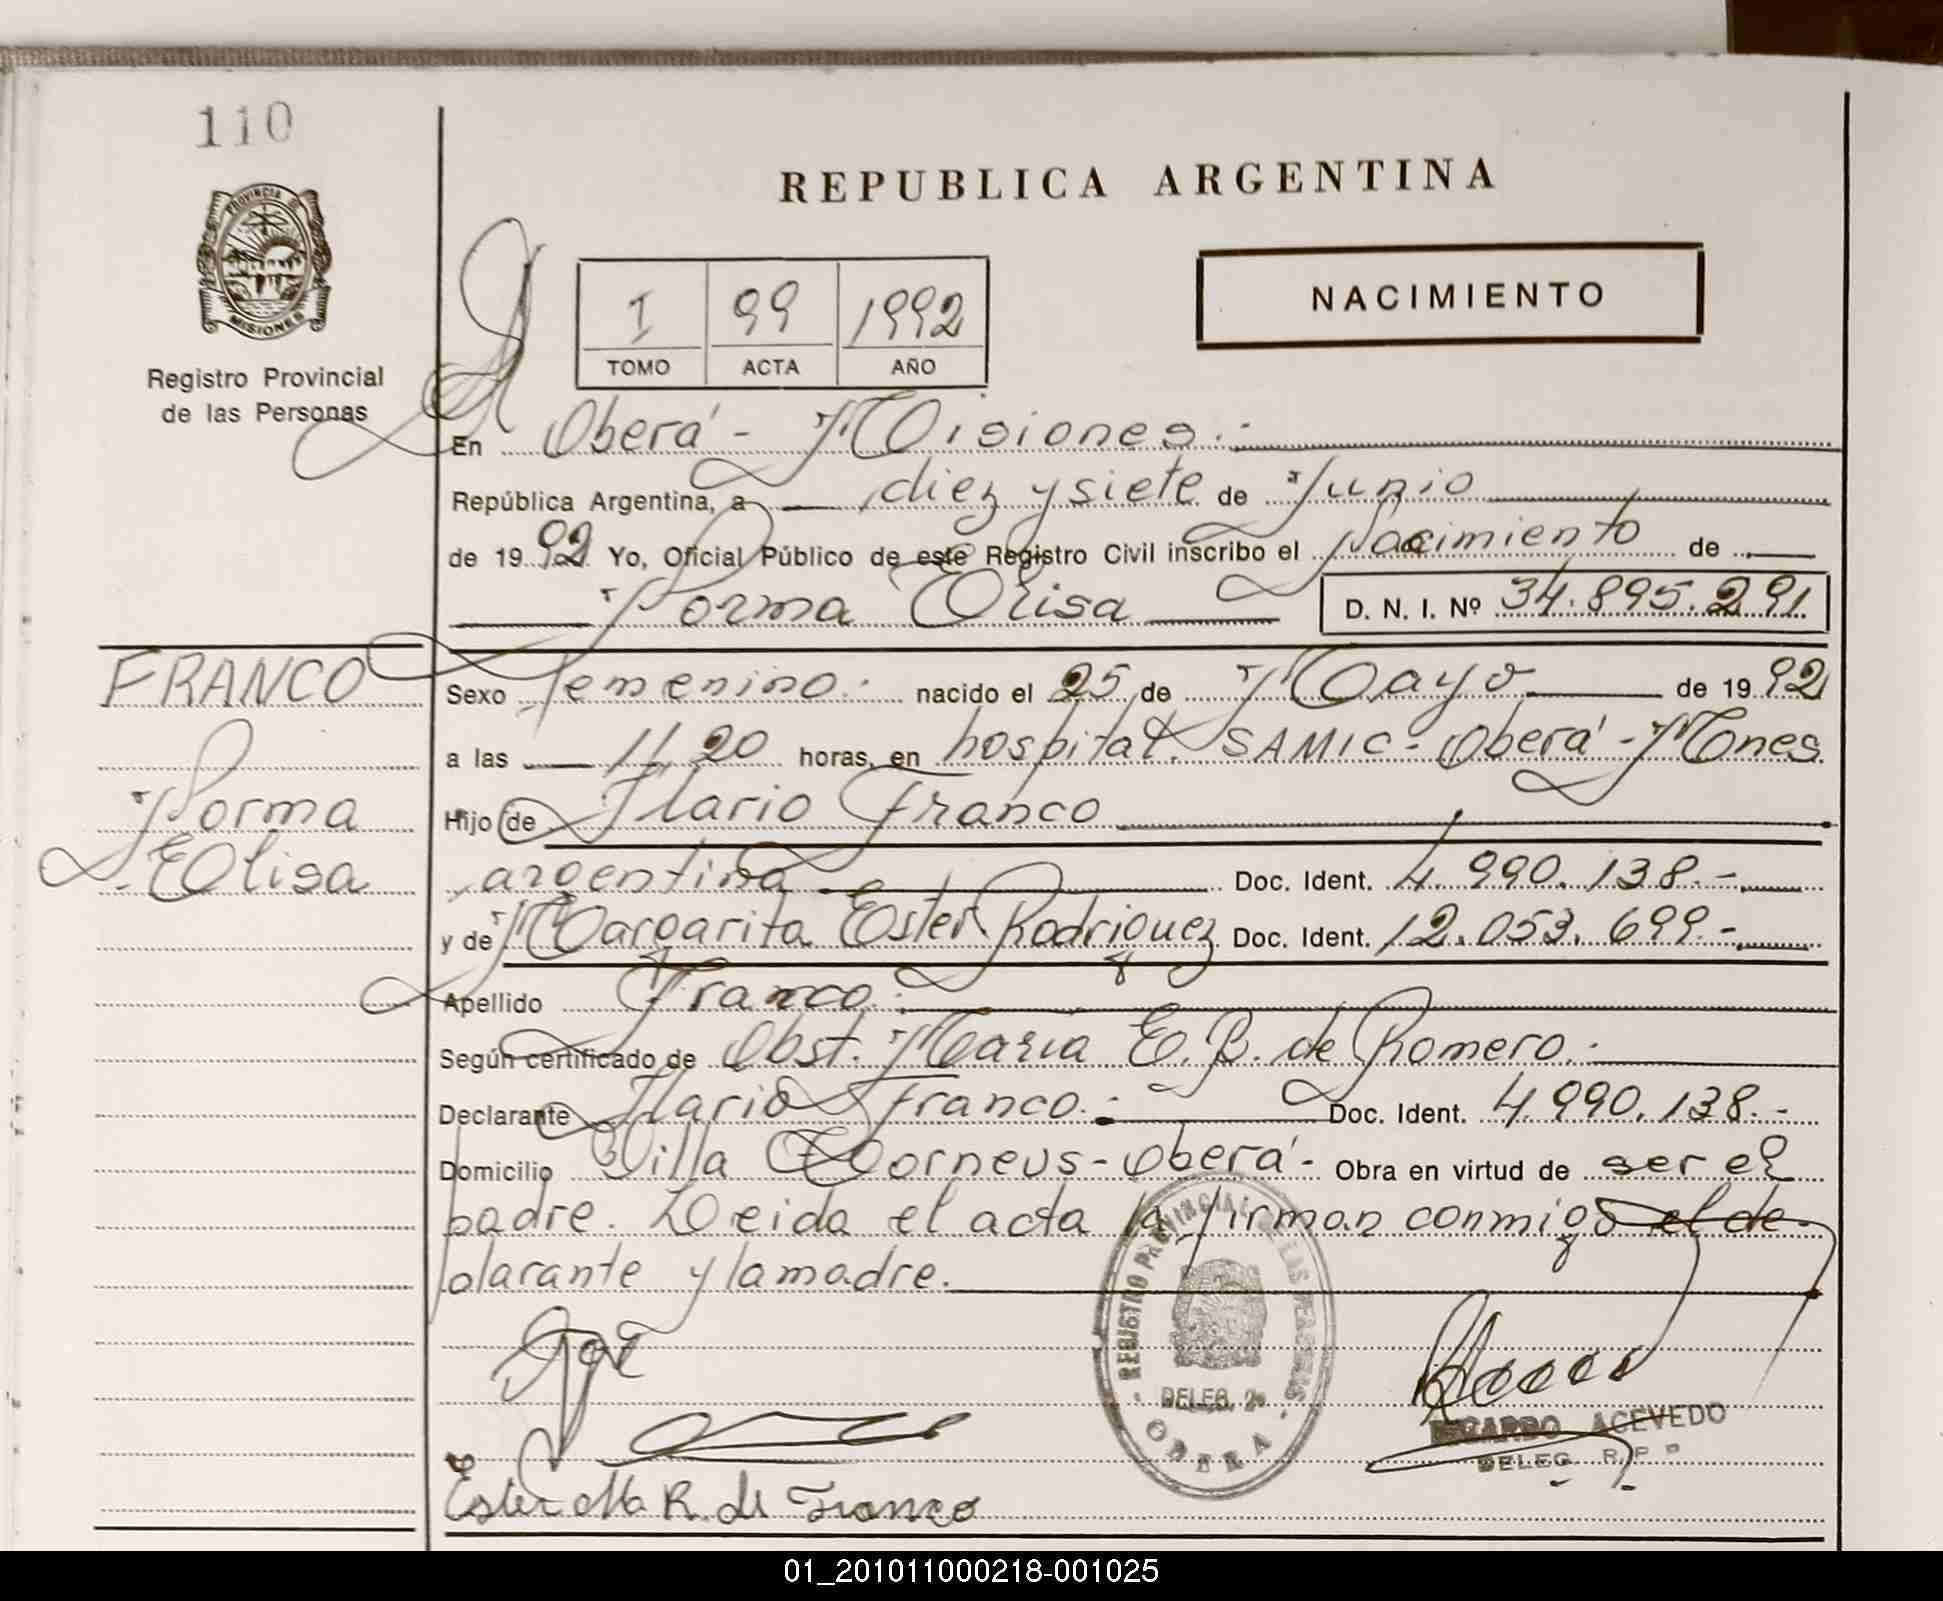 110
REPUBLICA ARGENTINA
PROVINCIA DE
MISIONES
Registro Provincial
de las Personas
I 99 1992
TOMO ACTA AÑO
NACIMIENTO
En Oberá - Misiones.-
República Argentina, a diez y siete de Junio
de 19 92 Yo, Oficial Público de este Registro Civil inscribo el Nacimiento de
Norma Elisa D. N. I. Nº 34.895.291
FRANCO
Norma
Elisa
Sexo femenino. nacido el 25 de Mayo de 19 92
a las 11.20 horas, en hospital. SAMIC - Oberá - Mnes
Hijo de Ilario Franco
argentina Doc. Ident. 4.990.138.-
y de Margarita Ester Rodriguez Doc. Ident. 12.053.699.-
Apellido Franco.-
Según certificado de Obst. Maria E. B. de Romero.-
Declarante Ilario Franco.- Doc. Ident. 4.990.138.-
Domicilio Villa - Oberá - Obra en virtud de ser el
padre. Leida el acta la firman conmigo el de-
clarante y la madre.
REGISTRO PROVINCIAL DE LAS PERSONAS
DELEG. 2a
OBERA
ACEVEDO
DELEG. R. P. P
Ester Ma R. de Franco
01_201011000218-001025